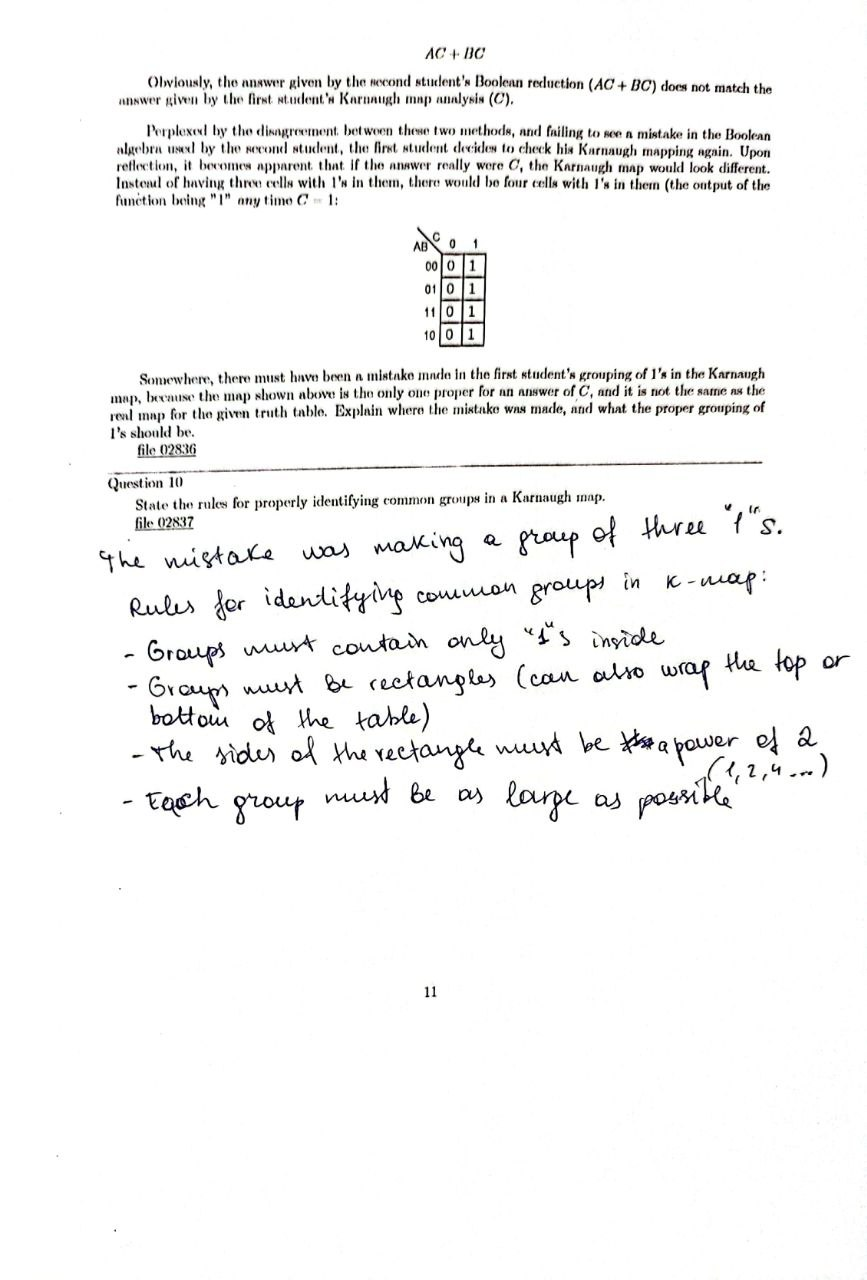 AC + BC
Obviously, the answer given by the second student's Boolean reduction (AC + BC) does not match the
answer given by the first student's Karnaugh map analysis (C).
Perplexed by the disagreement between these two methods, and failing to see a mistake in the Boolean
algebra used by the second student, the first student decides to check his Karnaugh mapping again. Upon
reflection, it becomes apparent that if the answer really were C, the Karnaugh map would look different.
Instead of having three cells with 1's in them, there would be four cells with 1's in them (the output of the
function being "1" any time C = 1:
C
AB 0 1
00 0 1
01 0 1
11 0 1
10 0 1
Somewhere, there must have been a mistake made in the first student's grouping of 1's in the Karnaugh
map, because the map shown above is the only one proper for an answer of C, and it is not the same as the
real map for the given truth table. Explain where the mistake was made, and what the proper grouping of
1's should be.
file 02836
Question 10
State the rules for properly identifying common groups in a Karnaugh map.
file 02837
The mistake was making a group of three "1"s.
Rules for identifying common groups in k-map:
- Groups must contain only "1"s inside
- Groups must be rectangles (can also wrap the top or
bottom of the table)
- The sides of the rectangle must be a power of 2
(1, 2, 4 ...)
- Each group must be as large as possible
11